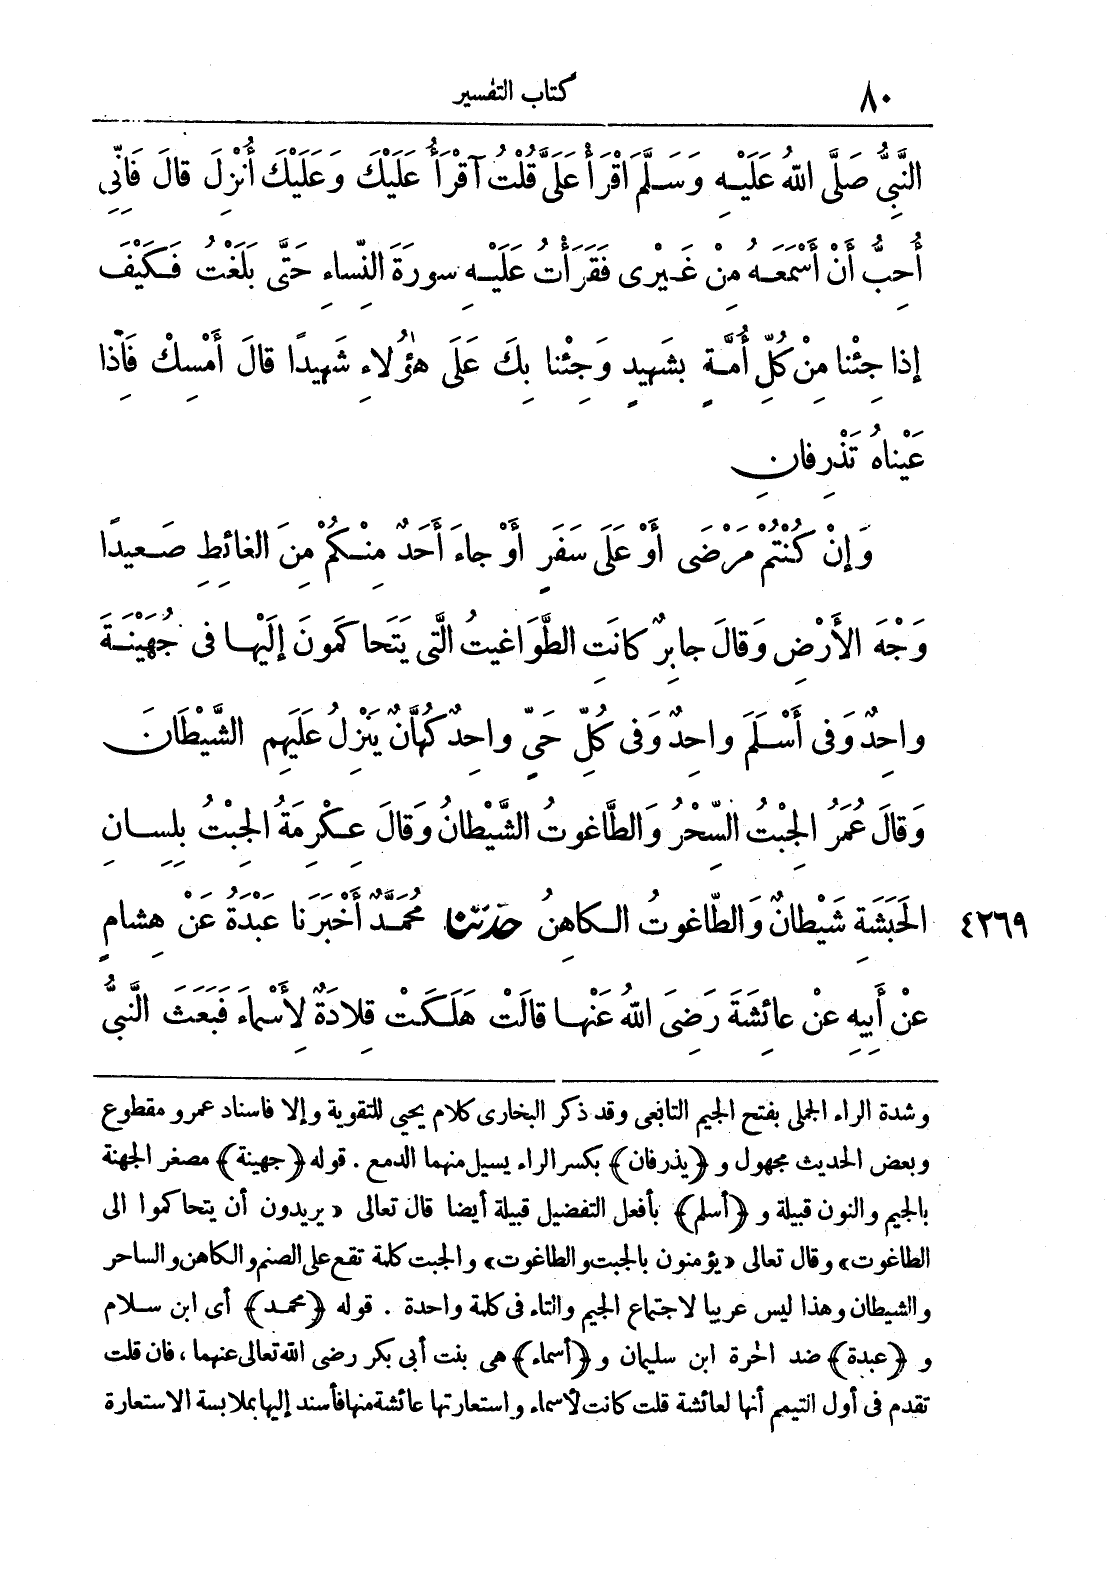 ٨٠ كتاب التفسير
النَّبِىُّ صَلَّى اللهُ عَلَيْهِ وَسَلَّمَ اقْرَأْ عَلَىَّ قُلْتُ آقْرَأُ عَلَيْكَ وَعَلَيْكَ أُنْزِلَ قالَ فَانِّى
أُحِبُّ أَنْ أَسْمَعَهُ مِنْ غَيْرِى فَقَرَأْتُ عَلَيْهِ سورَةَ النِّساءِ حَتَّى بَلَغْتُ فَكَيْفَ
إذا جِئْنا مِنْ كُلِّ أُمَّةٍ بِشَهِيدٍ وَجِئْنا بِكَ عَلَى هٰؤُلاءِ شَهِيدًا قالَ أَمْسِكْ فَاذا
عَيْناهُ تَذْرِفانِ
وَإنْ كُنْتُمْ مَرْضَى أَوْ عَلَى سَفَرٍ أَوْ جاءَ أَحَدٌ مِنْكُمْ مِنَ الغائطِ صَعيدًا
وَجْهَ الأَرْضِ وَقالَ جابِرٌ كانَتِ الطَّوَاغيتُ الَّتى يَتَحاكَمُونَ إلَيْها فى جُهَيْنَةَ
واحِدٌ وَفى أَسْلَمَ واحِدٌ وَفى كُلِّ حَىٍّ واحِدٌ كُهَّانٌ يَنْزِلُ عَلَيْهِم الشَّيْطَانُ
وَقالَ عُمَرُ الجِبْتُ السِّحْرُ وَالطَّاغوتُ الشَّيْطانُ وَقالَ عِكْرِمَةُ الجِبْتُ بِلِسانِ
الحَبَشَةِ شَيْطانٌ وَالطّاغوتُ الكاهِنُ حدثنا مُحَمَّدٌ أَخْبَرَنا عَبْدَةُ عَنْ هِشامٍ ٤٢٦٩
عَنْ أَبِيهِ عَنْ عائِشَةَ رَضِىَ اللهُ عَنْها قالَتْ هَلَكَتْ قِلادَةٌ لِأَسْماءَ فَبَعَثَ النَّبِىُّ
وشدة الراء الجملى بفتح الجيم التابعى وقد ذكر البخارى كلام يحيى للتقوية وإلا فاسناد عمرو مقطوع
وبعض الحديث مجهول و ﴿يذرفان﴾ بكسر الراء يسيل منهما الدمع . قوله ﴿جهينة﴾ مصغر الجهنة
بالجيم والنون قبيلة و ﴿أسلم﴾ بأفعل التفضيل قبيلة أيضا قال تعالى «يريدون أن يتحاكموا الى
الطاغوت» وقال تعالى «يؤمنون بالجبت والطاغوت» والجبت كلمة تقع على الصنم والكاهن والساحر
والشيطان وهذا ليس عربيا لاجتماع الجيم والتاء فى كلمة واحدة . قوله ﴿محمد﴾ أى ابن سلام
و ﴿عبدة﴾ ضد الحرة ابن سليمان و ﴿أسماء﴾ هى بنت أبى بكر رضى الله تعالى عنهما ، فان قلت
تقدم فى أول التيمم أنها لعائشة قلت كانت لأسماء واستعارتها عائشة منها فأسند إليها بملابسة الاستعارة